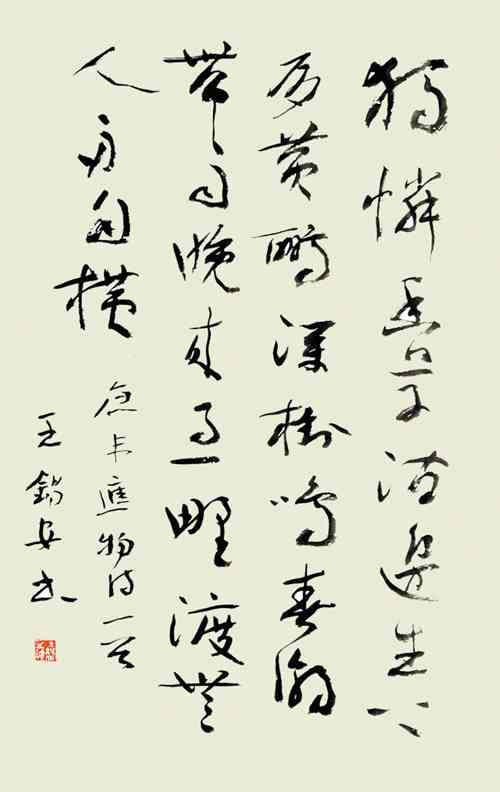 獨憐幽草澗邊生上
有黃鸝深樹鳴春潮
帶雨晚來急野渡無
人舟自橫
韋應物詩一首
王錫安书